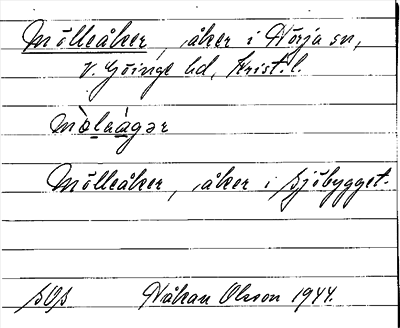 Mölleåker, åker i Nörja sn,
V. Göinge hd, Krist. l.
mòlaàgər
Mölleåker, åker i Sjöbygget.
SOS Håkan Olsson 1944.